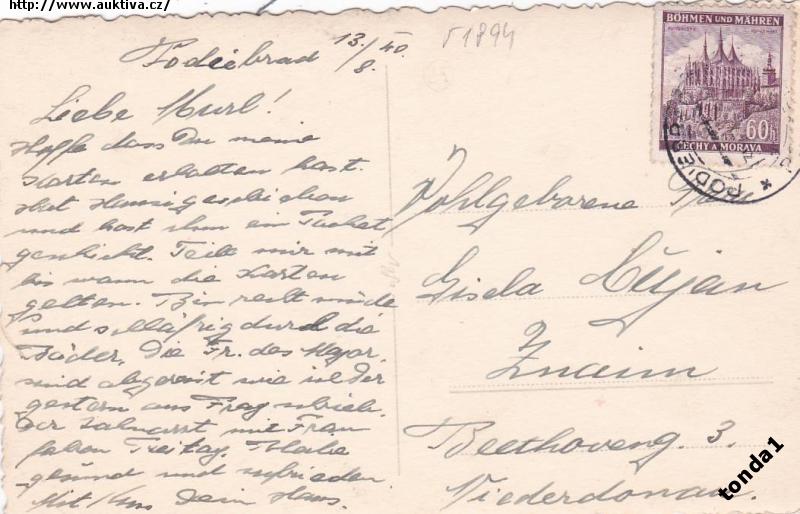 http://www.auktiva.cz/
Podiebrad 13./8. 40
51894
Liebe Murl!
Hoffe dass Du meine
Karten erhalten hast.
Hat Hansi geschrieben
und hast ihm ein Packet
geschickt. Teile mir mit
bis wann die Karten
gelten. Bin recht müde
und schläfrig durch die
Bäder. Die Fr. des Major
sind abgereist wie
gestern aus Prag
Der Zahnarzt mit Frau
fahren Freitag. Bleibe
gesund und zufrieden.
Mit Kuss Dein Hans.
BÖHMEN UND MÄHREN
60h
ČECHY A MORAVA
PODIEBRAD
Wohlgeborene Frau
Gisela
Znaim
Beethoveng. 3.
Niederdonau
tonda1